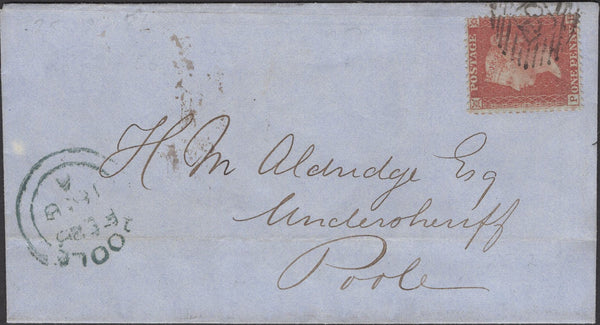 POSTAGE
ONE PENNY
H M Aldridge Esq
Undersheriff
Poole
POOLE
A